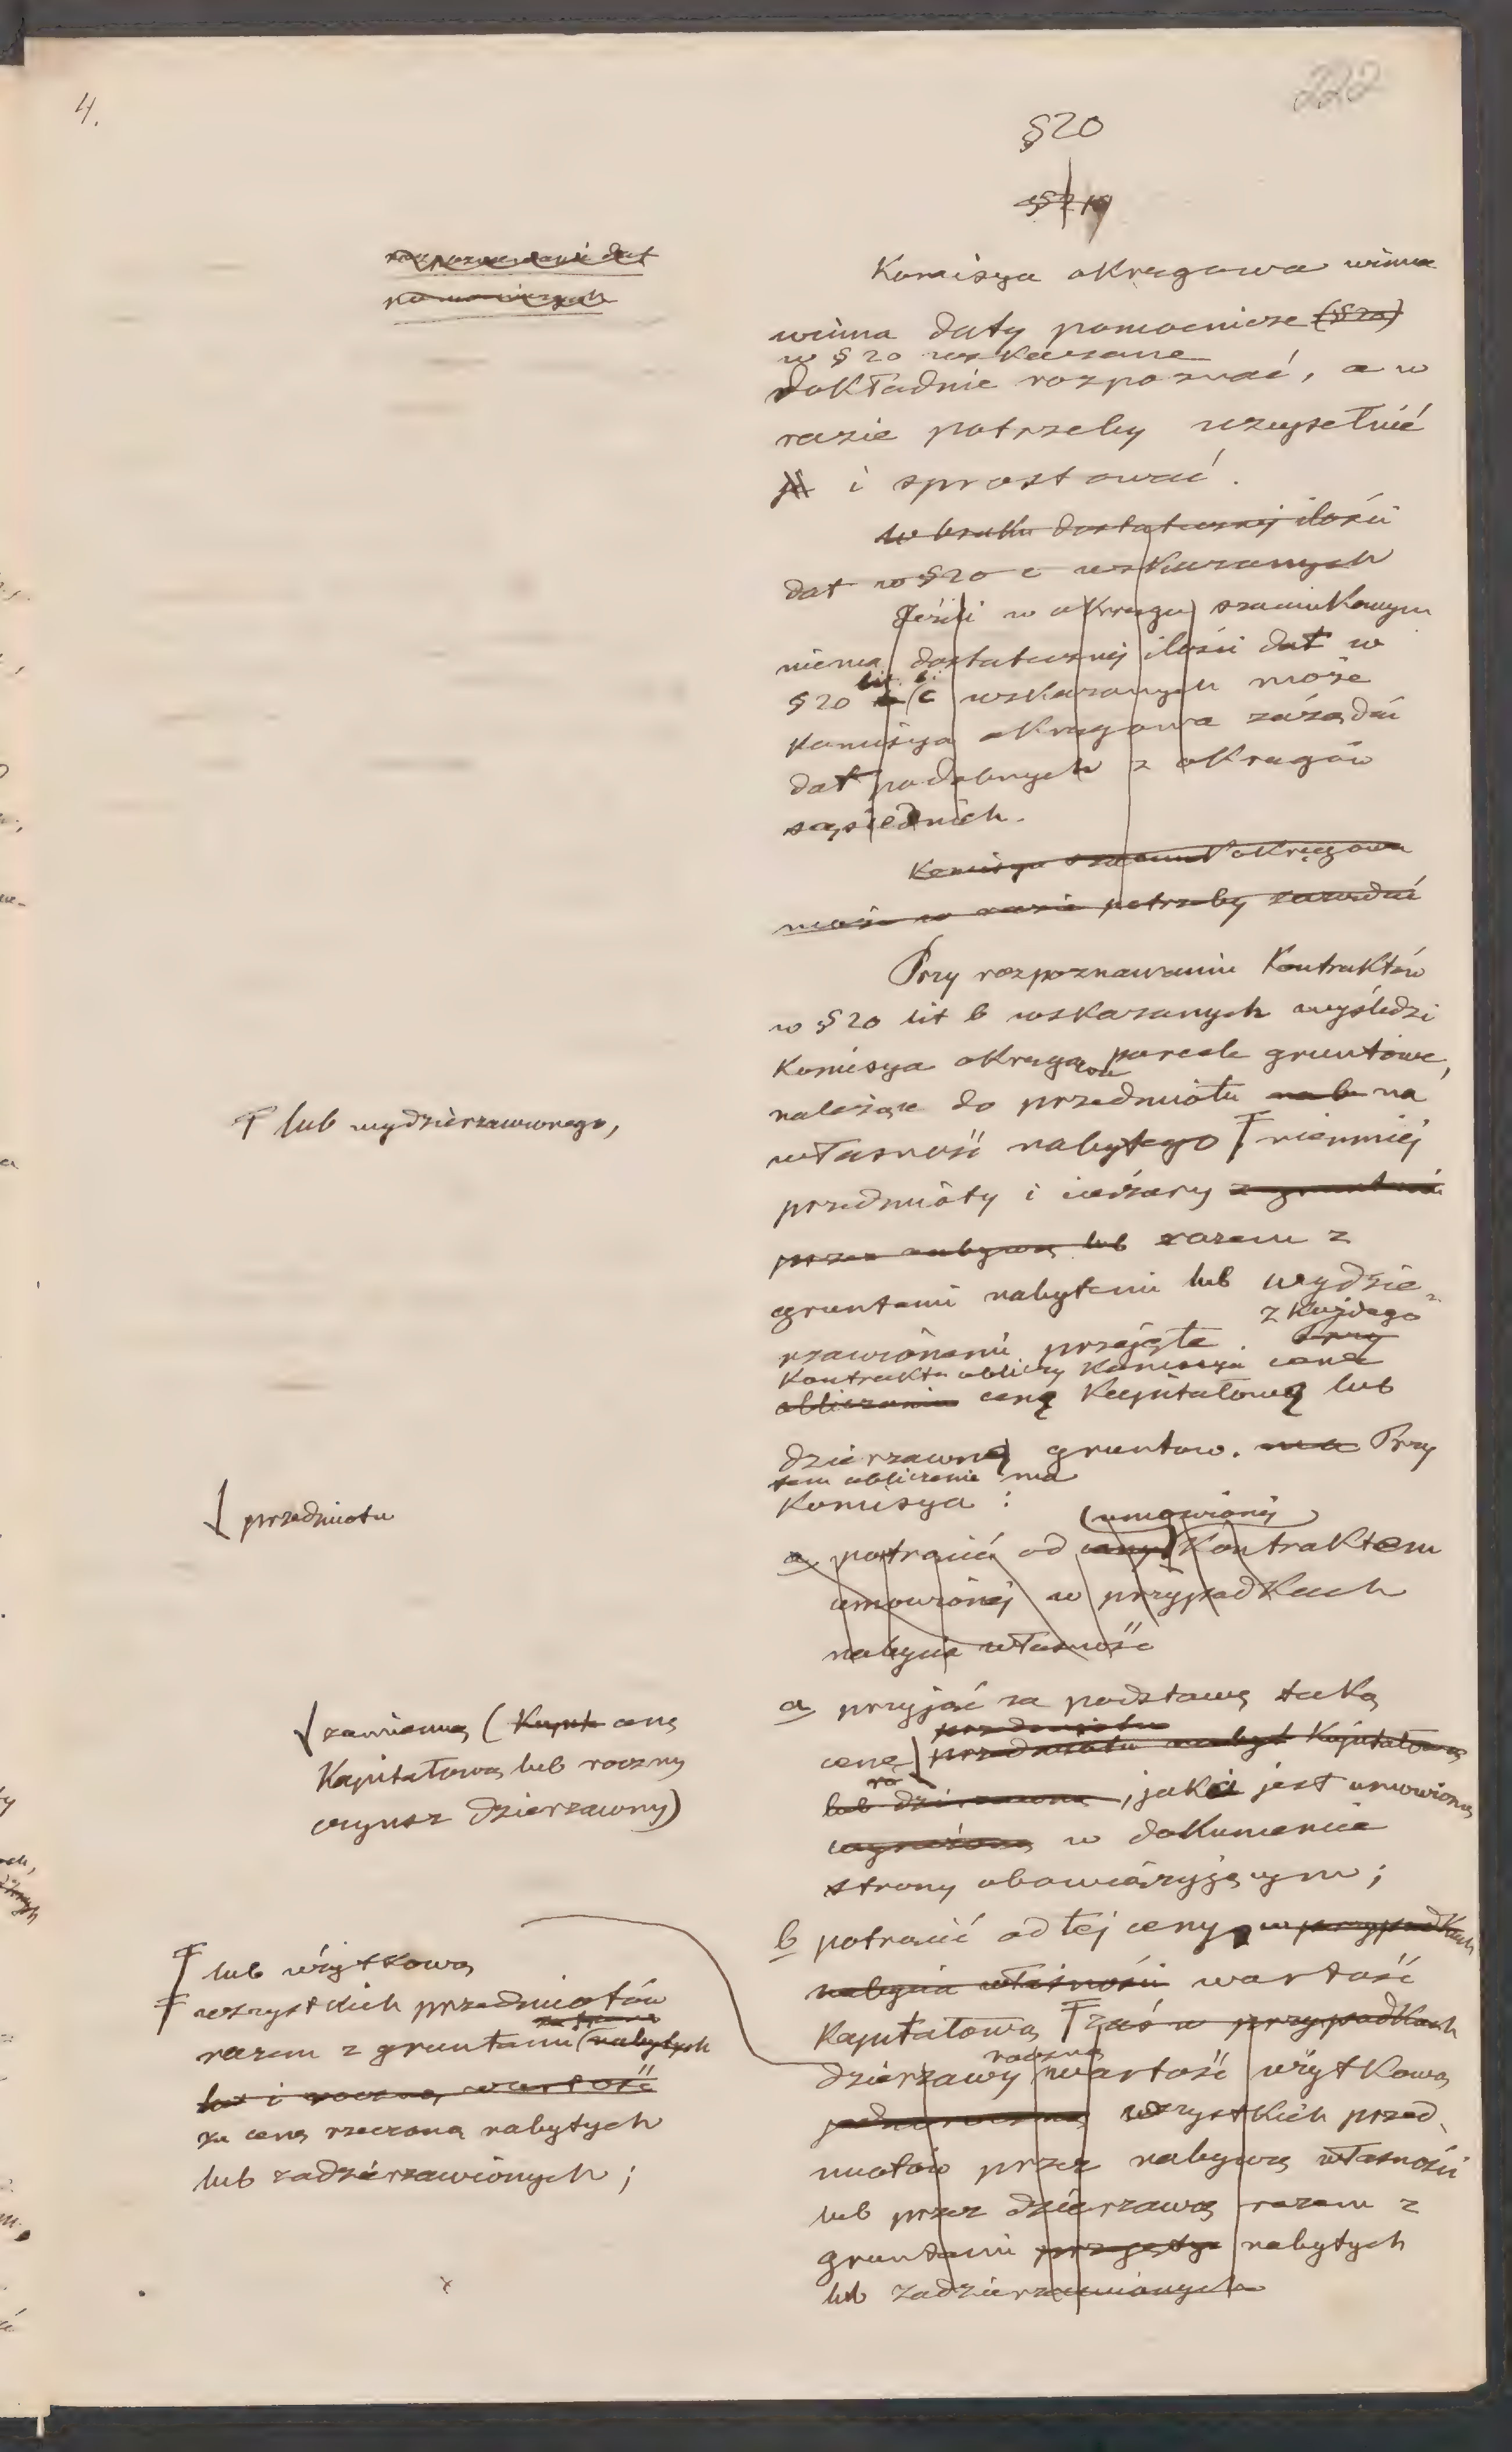 4.
222
§20
Komisya okręgowa winna
winna daty pomocnicze (§20)
w §20 wskazane
dokładnie rozpoznać, a w
razie potrzeby uzupełnić
i sprostować.
w braku dostatecznej ilości
dat w §20 c wskazanych
Jeżeli w okręgu szacunkowym
niema dostatecznej ilości dat w
§20 lit. b. c wskazanych może
Komisya okręgowa zażądać
dat podobnych z okręgów
sąsiednich.
Komisya okręgowa
może w razie potrzeby zarządzić
Przy rozpoznawaniu Kontraktów
w §20 lit b wskazanych wyśledzi
Komisya okręgowa parcele gruntowe,
należące do przedmiotu na
własność nabytego Ŧ niemniej
Ŧ lub wydzierzawionego,
przedmioty i ciężary
przez nabywcę lub razem z
gruntami nabytemi lub wydzie-
rzawionemi przejęte. z każdego
Kontraktu obliczy Komisya cenę
obliczaniu cenę Kapitałową lub
dzierzawną gruntow. ma Przy
tem obliczenie ma
Komisya :
przedmiotu
(umowionej)
a potrącić od ceny Kontraktem
umowionej w przypadkach
nabycia własność
a przyjąć za podstawę taką
przedmiotu
cenę przedmiotu nabyt Kapitałową
lub dzierzawną, jaka jest umowioną
w dokumencie
strony obowiązyjącym;
zamienną ( Kapit cenę
Kapitałową lub roczny
czynsz dzierzawny)
b potrącić od tej ceny w przypadkach
nabycia własności wartość
Kapitałową Ŧ zaś w przypadkach
roczną
dzierzawy wartość użytkową
wszystkich przed-
miotów przez nabywcę własności
lub przez dzierzawcę razem z
gruntami przejętych nabytych
lub zadzierzawionych
Ŧ lub użytkową
Ŧ wszystkich przedmiotów
razem z gruntami (nabytych
lub i roczną wartość
za cenę rzeczoną nabytych
lub zadzierzawionych;